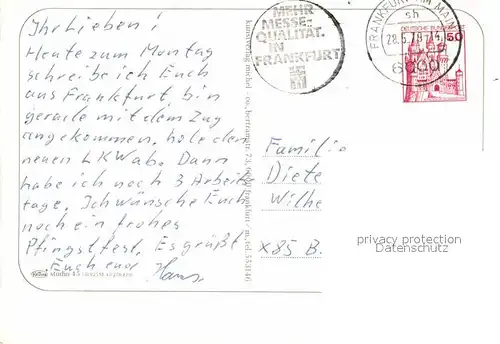 Ihr Lieben!
Heute zum Montag
schreibe ich Euch
aus Frankfurt, bin
gerade mit dem Zug
angekommen, hole den
neuen LKW ab. Dann
habe ich noch 3 Arbeits
tage. Ich wünsche Euch
noch ein frohes
Pfingstfest. Es grüßt
Euch euer Hans
MEHR
MESSE-
QUALITÄT.
IN
FRANKFURT
FRANKFURT AM MAIN
sb
28.5.79
6000
DEUTSCHE BUNDESPOST
50
kunstverlag michel
Familie
Diete
Wilhe
X85 B.
privacy protection
Datenschutz